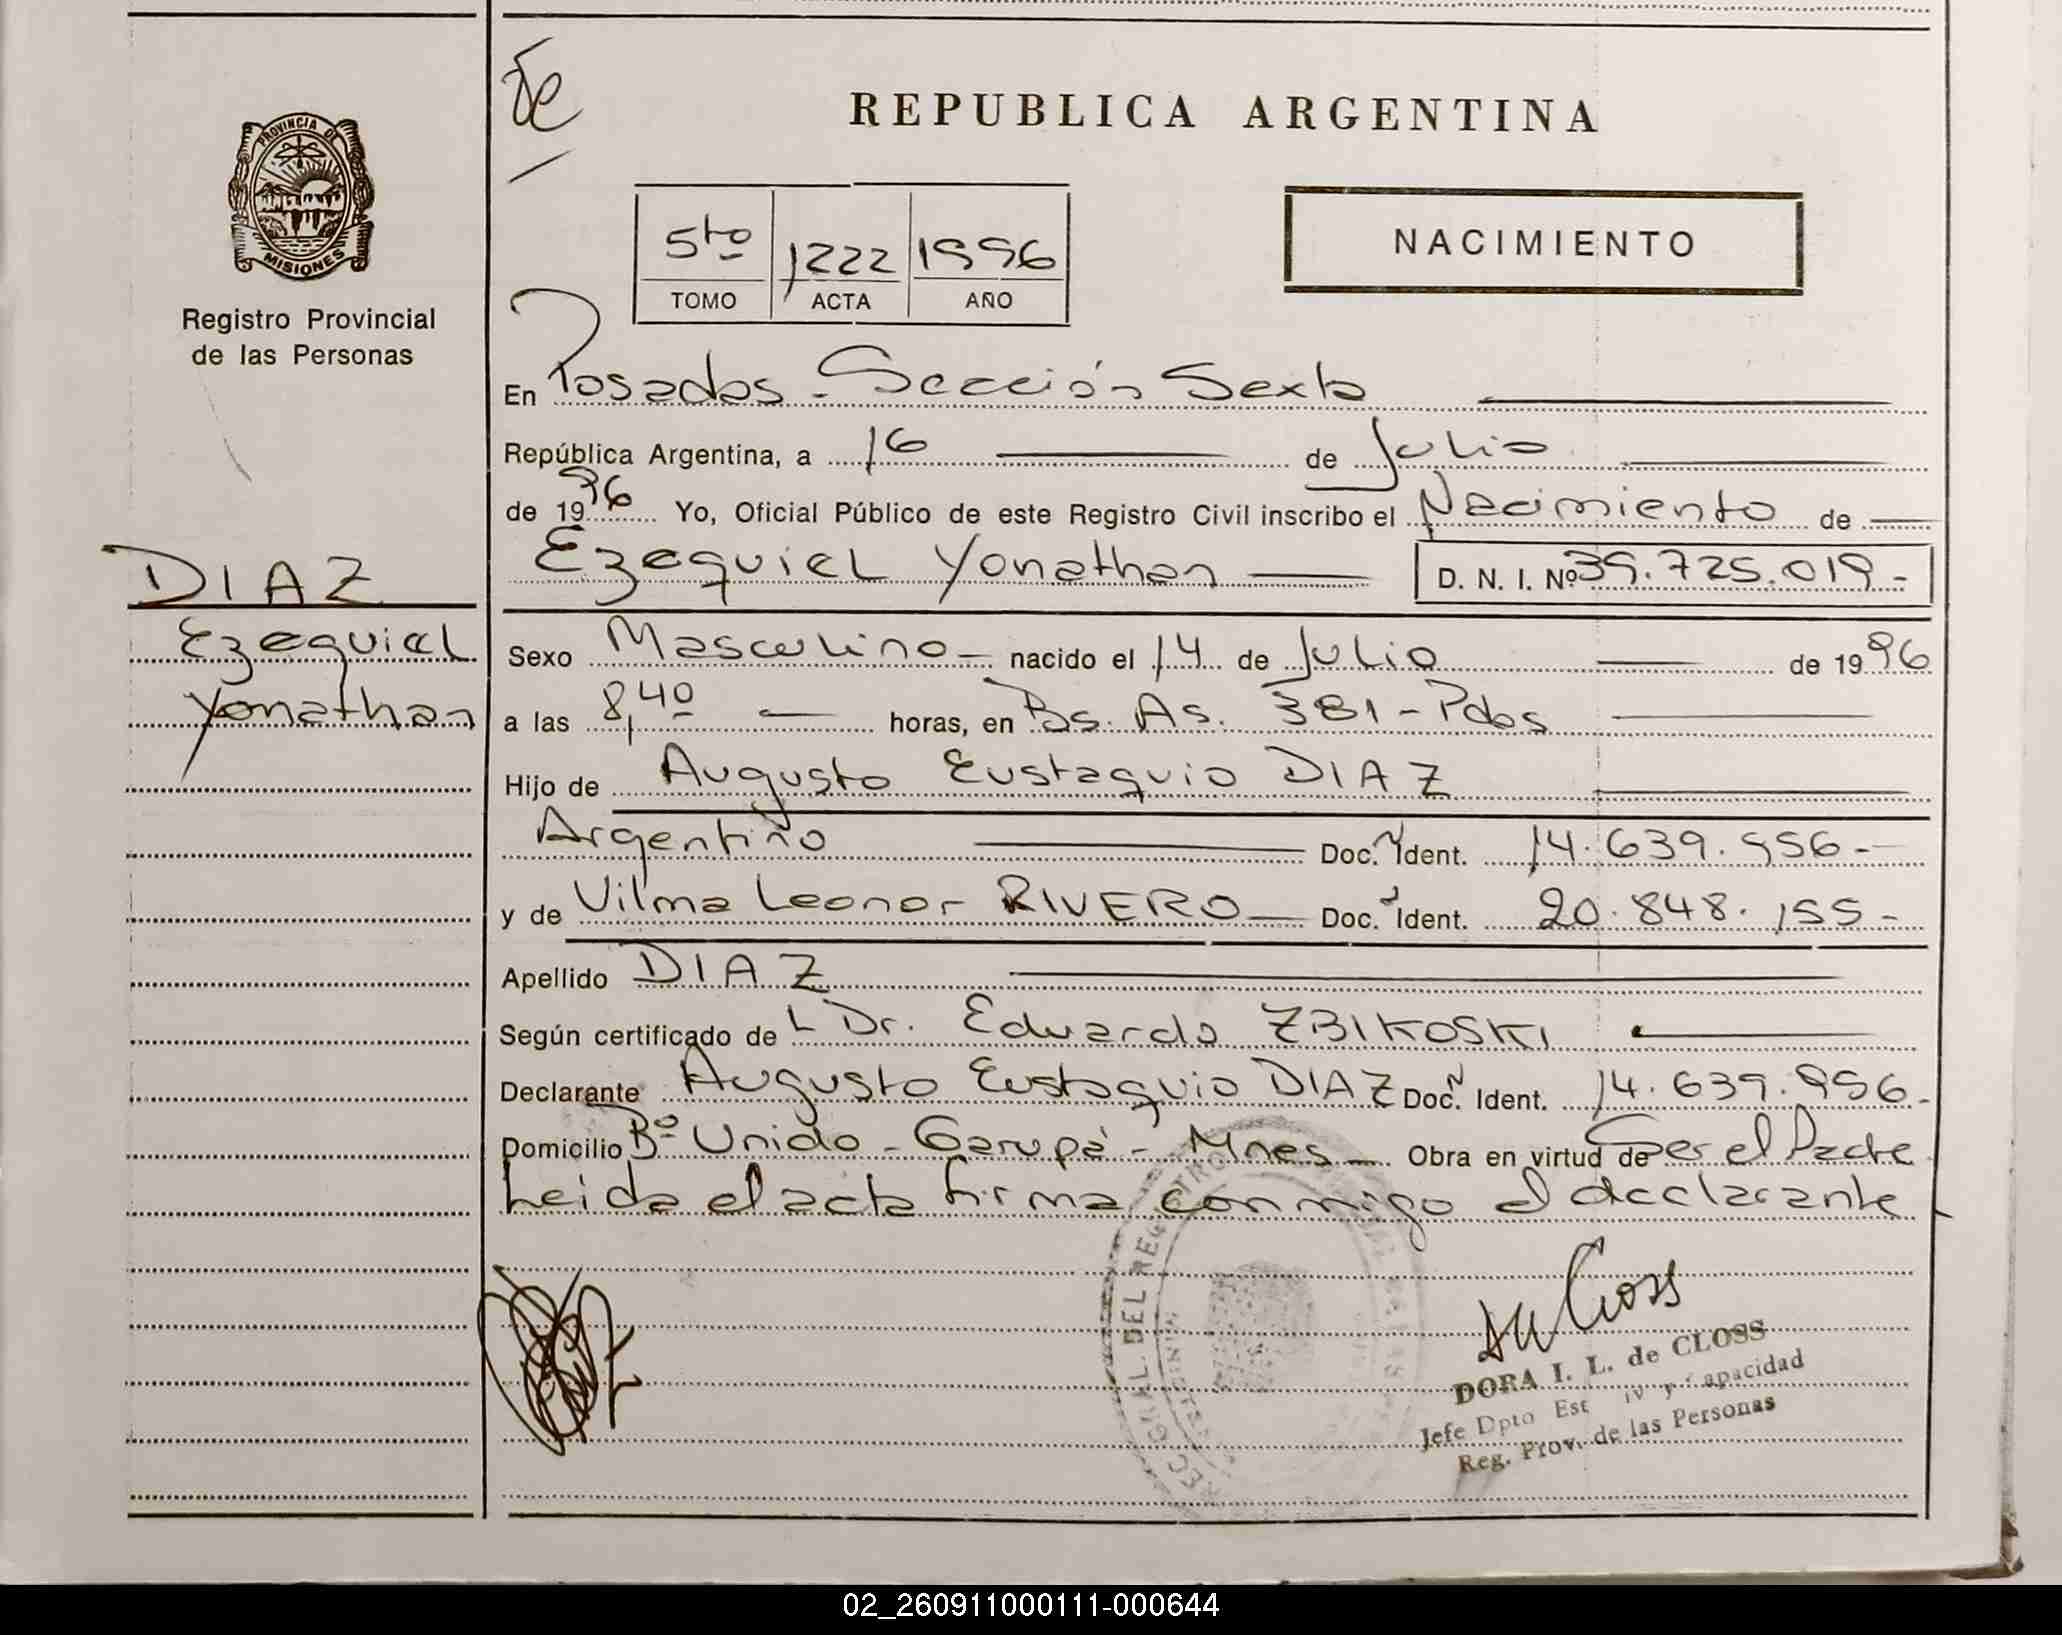 PROVINCIA DE
MISIONES
Registro Provincial
de las Personas
DIAZ
Ezequiel
Yonathan
REPUBLICA ARGENTINA
5to 1222 1996
TOMO ACTA AÑO
NACIMIENTO
En Posadas - Sección Sexta
República Argentina, a 16 de Julio
de 1996 Yo, Oficial Público de este Registro Civil inscribo el Nacimiento de
Ezequiel Yonathan D. N. I. Nº 39.725.019.-
Sexo Masculino - nacido el 14 de Julio de 1996
a las 8,40 horas, en Bs. As. 381 - Pdas
Hijo de Augusto Eustaquio DIAZ
Argentino Doc. Ident. 14.639.956.-
y de Vilma Leonor RIVERO Doc. Ident. 20.848.155-
Apellido DIAZ
Según certificado de L Dr. Eduardo ZBIKOSKI
Declarante Augusto Eustaquio DIAZ Doc. Ident. 14.639.956.-
Domicilio Bº Unido - Garupá - Mnes - Obra en virtud de Ser el Padre
Leida el acta firma conmigo el declarante
DORA I. L. de CLOSS
Jefe Dpto Est iv y Capacidad
Reg. Prov. de las Personas
02_260911000111-000644